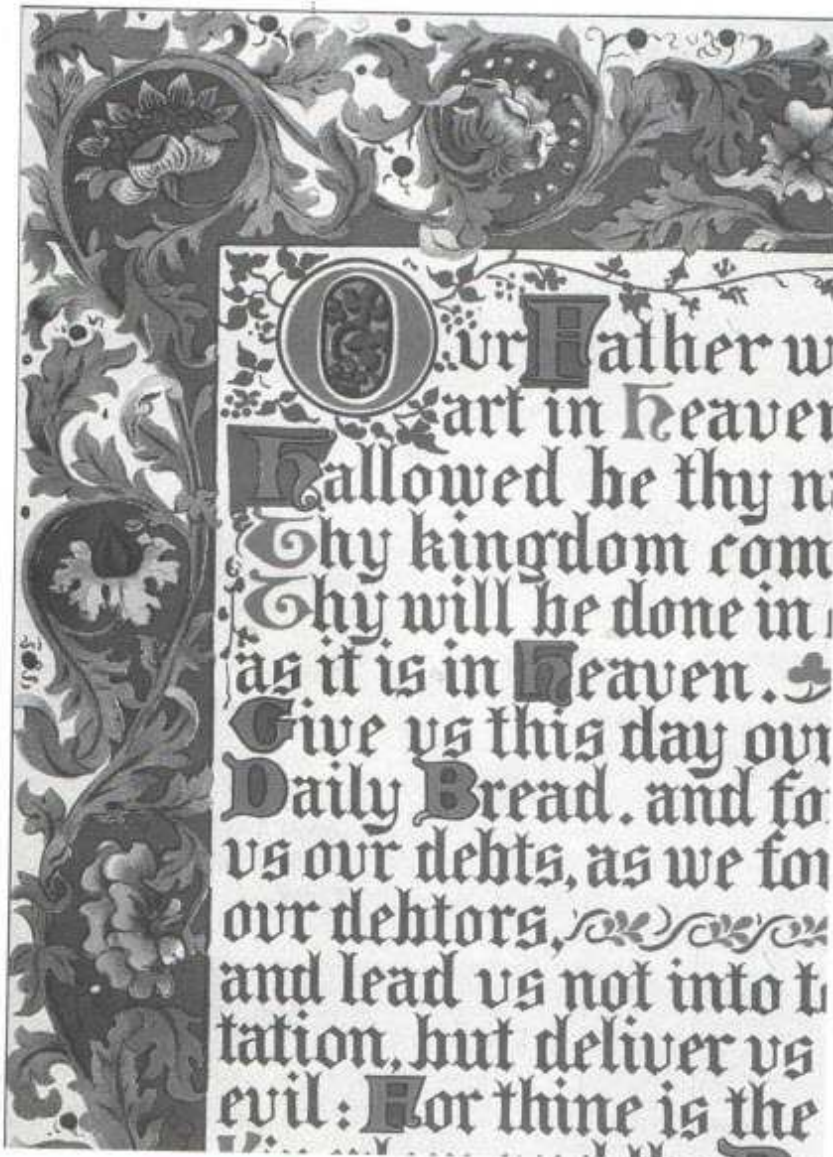 Ovr Father w
art in Heaven
Hallowed be thy n
Thy kingdom com
Thy will be done in
as it is in Heaven.
Give vs this day ovr
Daily Bread. and for
vs ovr debts, as we for
ovr debtors,
and lead vs not into t
tation, but deliver vs
evil: For thine is the